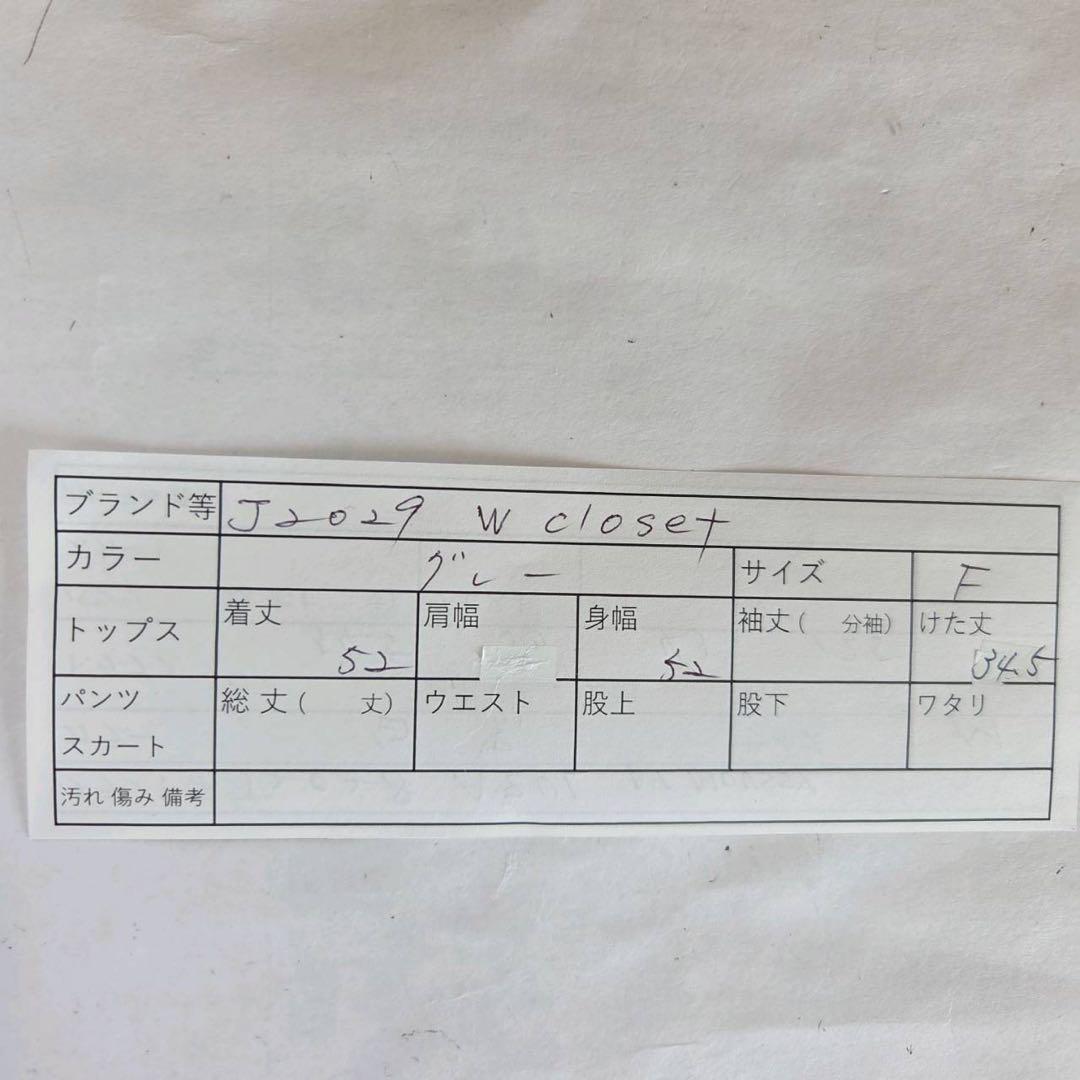 ブランド等 J2029 W closet
カラー グレー サイズ F
トップス 着丈 52 肩幅 身幅 52 袖丈( 分袖) けた丈 34.5
パンツ 総丈( 丈) ウエスト 股上 股下 ワタリ
スカート
汚れ 傷み 備考